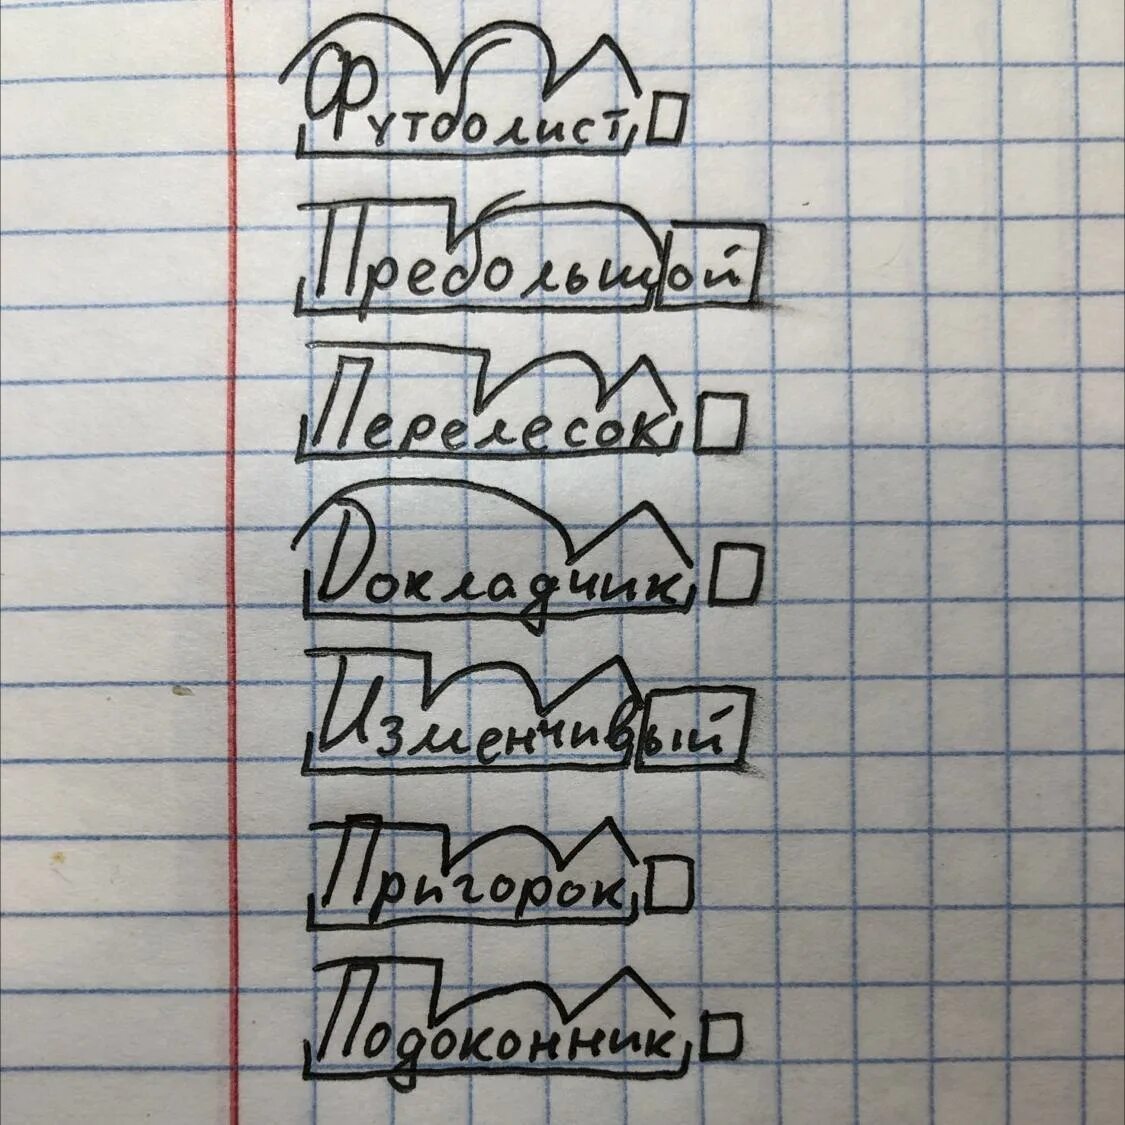 Футболист
Пребольшой
Перелесок
Докладчик
Изменчивый
Пригорок
Подоконник